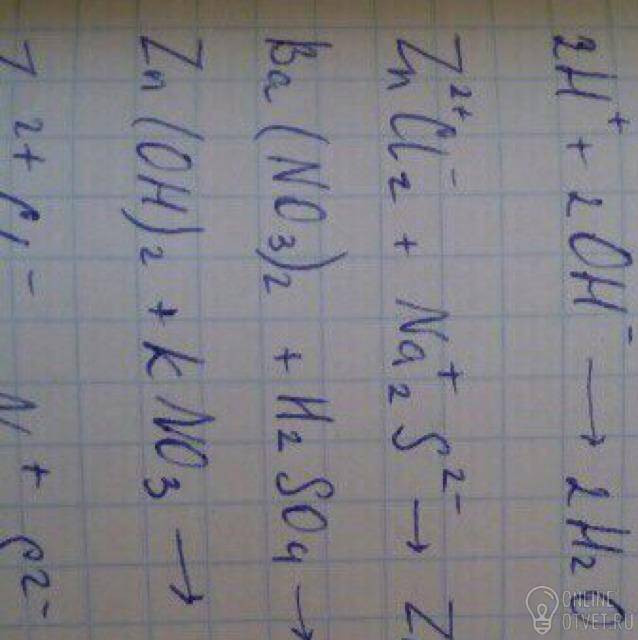 2H⁺ + 2OH⁻ → 2H₂
Zn²⁺Cl₂⁻ + Na₂⁺S²⁻ → Z
Ba(NO₃)₂ + H₂SO₄ →
Zn(OH)₂ + KNO₃ →
2+ Cl⁻ N + S²⁻
ONLINE
OTVET.RU